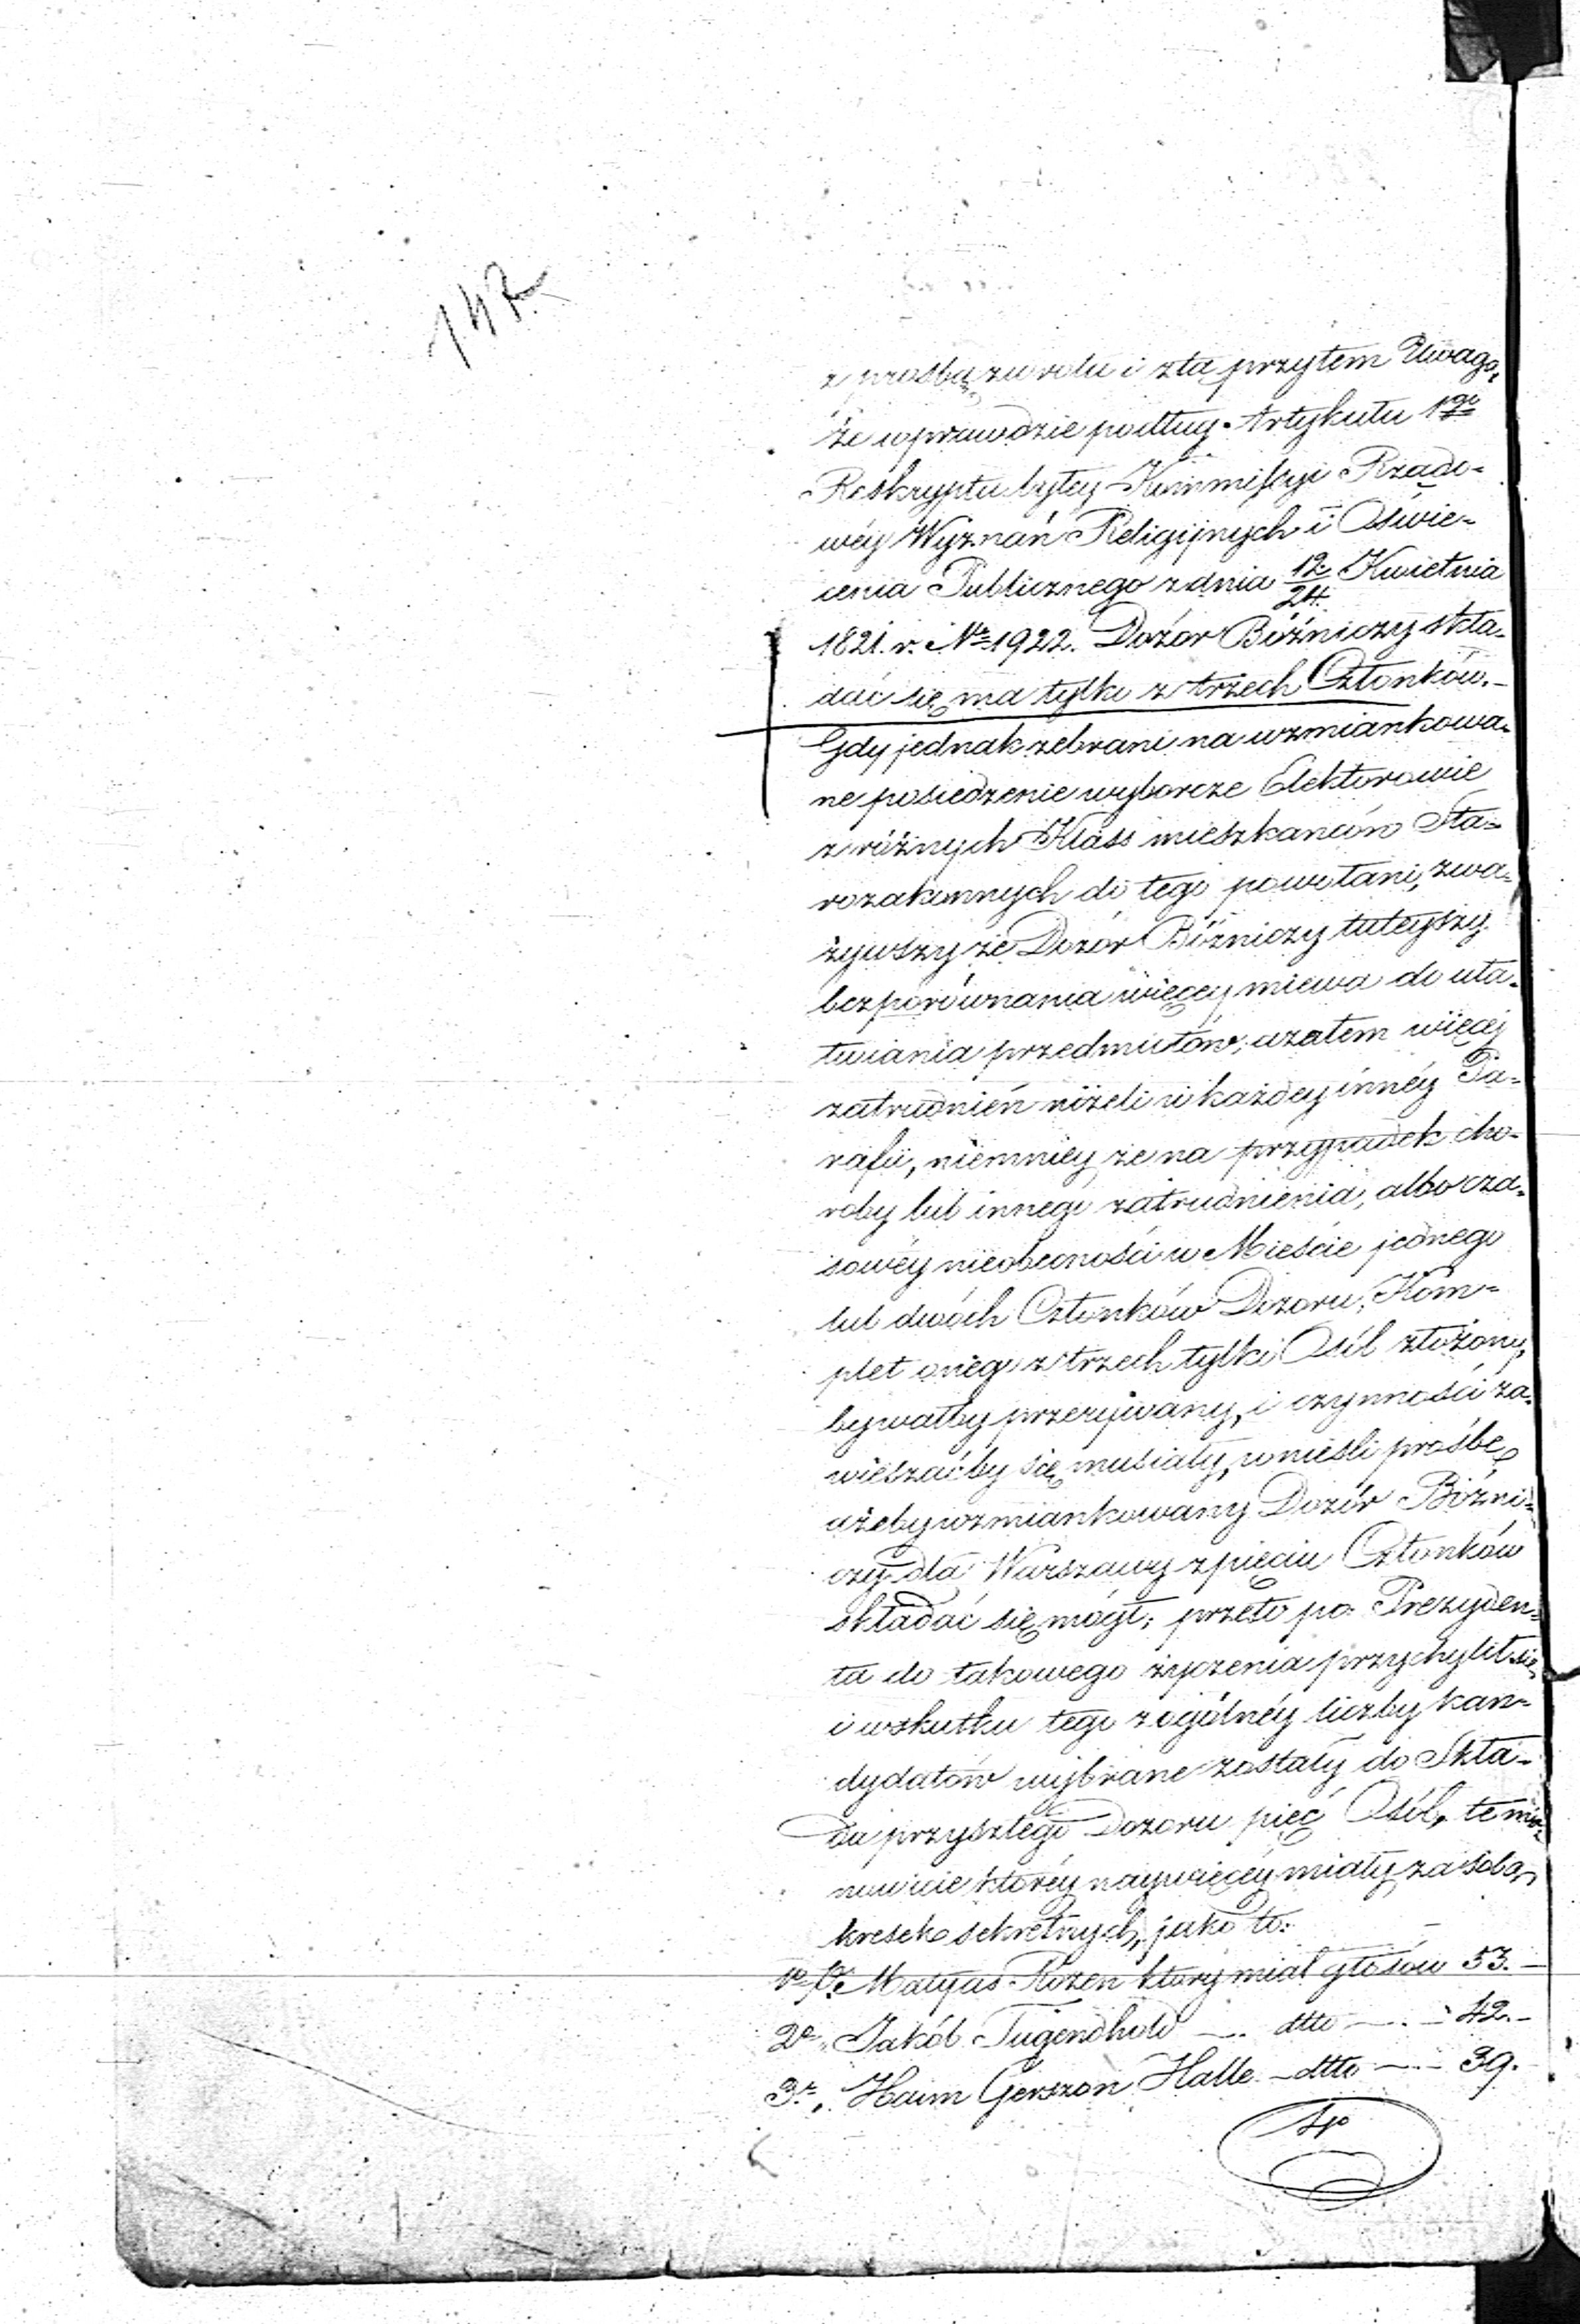 147.
z prośbą zwrotu i z tą przytem Uwagą,
że wprawdzie podług Artykułu 1go
Reskryptu byłey Kommissyi Rządo-
wéy Wyznań Religijnych i Oświe-
cenia Publicznego z dnia 12/24. Kwietnia
1821. r. No 1922. Dozór Bóźniczy skła-
dać się ma tylko z trzech Członków.-
Gdy jednak zebrani na wzmiankowa-
ne posiedzenie wyborcze Elektorowie
z różnych Klass mieszkańców Sta-
rozakonnych do tego powołani, zwa-
żywszy że Dozór Bóżniczy tuteyszy
bez porównania więcey miewa do uła-
twiania przedmiotów, a zatem więcéj
zatrudnień niżeli w każdey innéy Pa-
rafii, niemniey że na przypadek cho-
roby lub innego zatrudnienia, albo cza-
sowéy nieobecności w Mieście jednego
lub dwóch Członków Dozoru, Kom-
plet onego z trzech tylko Osób złożony,
bywałby przerywany, i czynności za-
wieszaćby się musiały, wnieśli prośbę
ażeby wzmiankowany Dozór Bóżni-
czy dla Warszawy z pięciu Członków
składać się mógł; przeto p.o. Prezyden-
ta do takowego życzenia przychylił się,
i w skutku tego z ogólnéy liczby kan-
dydatów wybrane zostały do Skła-
du przyszłego Dozoru pięć Osób, te mia-
nowicie któréy naywięcéy miały za sobą
kresek sekretnych, jako to:
1o P. Matyas Rozen który miał głosów 53. -
2o „ Jakób Tugendhold - dtto - - 42. -
3o „ Haim Gerszon Halle - dtto - - 39.